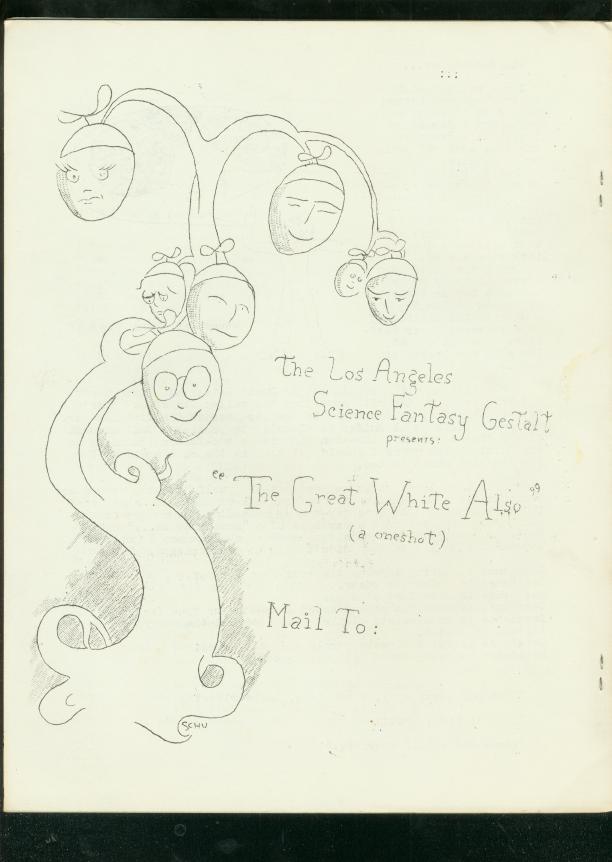 The Los Angeles
Science Fantasy Gestalt
presents:
"The Great White Also"
(a oneshot)
Mail To:
SCHU